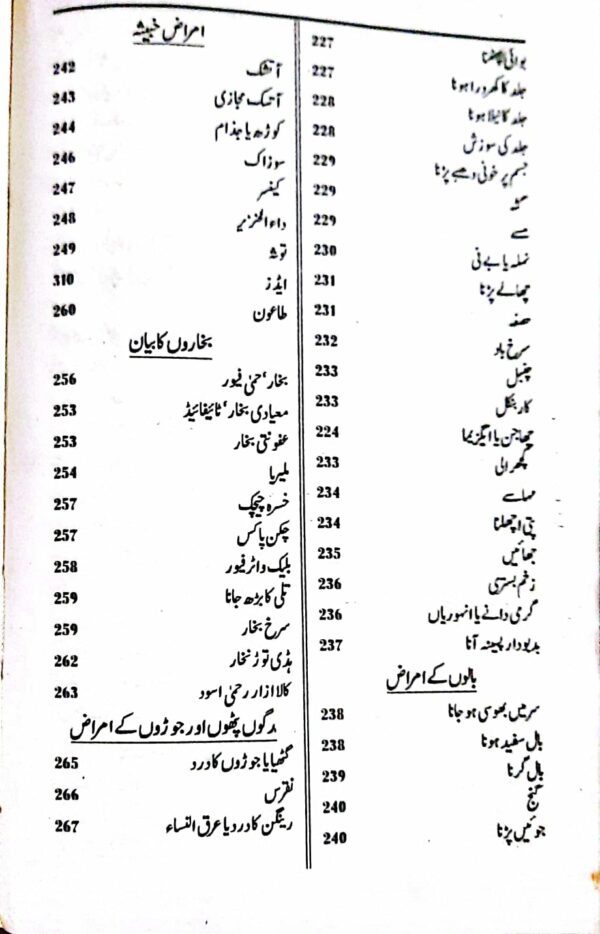 بوائی پھٹنا 227
جلد کا کھردرا ہونا 227
جلد کا نیلا ہونا 228
جلد کی سوزش 228
جسم پر خونی دھبے پڑنا 229
229
مسے 229
نملہ یا بے نی 230
چھالے پڑنا 231
231
سرخ باد 232
چنبل 233
کار بنکل 233
چھاجن یا ایگزیما 224
کھرالی 233
مہاسے 234
پتی اچھلنا 234
جھائیں 235
زخم بستری 236
گرمی دانے یا انہوریاں 236
بدبودار پسینہ آنا 237
بالوں کے امراض
سر میں بھوسی ہو جانا 238
بال سفید ہونا 238
بال گرنا 239
گنج 240
جوئیں پڑنا 240
امراض خبیثہ
آتشک 242
آتشک مجازی 243
کوڑھ یا جذام 244
سوزاک 246
کینسر 247
داء الخنزیر 248
توشہ 249
ایڈز 310
طاعون 260
بخاروں کا بیان
بخار، حمٰی فیور 256
معیادی بخار، ٹائیفائیڈ 253
عفونتی بخار 253
ملیریا 254
خسرہ چیچک 257
چکن پاکس 257
بلیک واٹر فیور 258
تلی کا بڑھ جانا 259
سرخ بخار 259
ہڈی توڑ بخار 262
کالا ازار رحمٰی اسود 263
رگوں پٹھوں اور جوڑوں کے امراض
گٹھیا یا جوڑوں کا درد 265
نقرس 266
رینگن کا درد یا عرق النساء 267